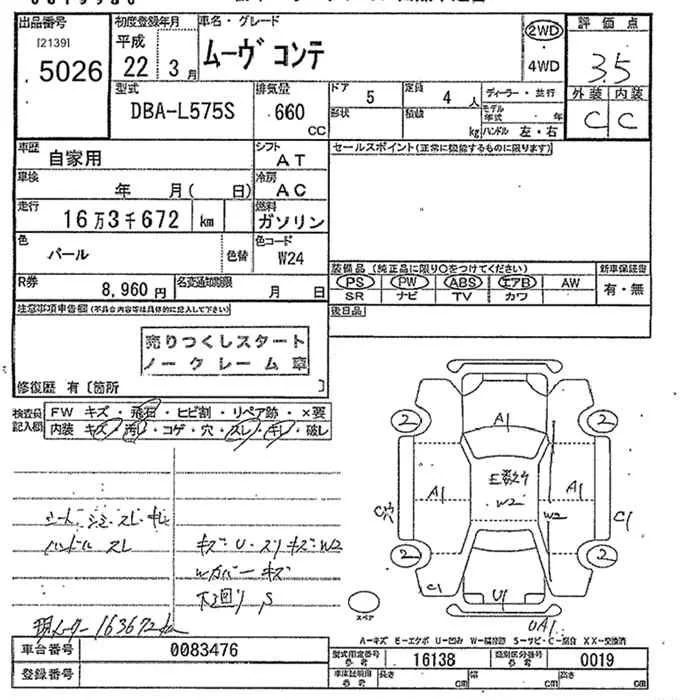 出品番号 初度登録年月 車名・グレード 評価点
[2139] 平成 ムーヴ コンテ 2WD 3.5
5026 22年 3月 4WD
外装 内装
型式 排気量 ドア 5 定員 4人 ディーラー・並行 C C
DBA-L575S 660 CC 形状 積載 kg モデル年式 年
ハンドル 左・右
車歴 自家用 シフト AT セールスポイント(正常に機能するものに限ります)
車検 年 月( 日) 冷房 AC
走行 16万3千672 km 燃料 ガソリン
色 パール 色替 色コード W24
装備品(純正品に限り○をつけてください) 新車保証書
R券 8,960円 名変通知期限 月 日 PS PW ABS エアB AW 有・無
SR ナビ TV カワ
注意事項申告欄(不具合内容等は具体的に記入して下さい) 後日品
売りつくしスタート
ノークレーム車
修復歴 有〔箇所 〕
検査員記入欄 FW キズ・飛石・ヒビ割・リペア跡・×要
内装 キズ・汚レ・コゲ・穴・スレ・キレ・破レ
2 A1 2
A1 W2 A1
W2
C穴 C1
シート シミ スレ キレ
ハンドル スレ キズ・U・スリキズ・W2
Wカバー キズ
下廻り S
2 2
C1 U1
スペア UA1
現メーター 163672km
A－キズ E－エクボ U－凹み W－補修跡 S－サビ・C－腐食 XX－交換済
車台番号 0083476 型式指定番号 参考 16138 類別区分番号 参考 0019
登録番号 車庫証明用 参考 長さ cm 幅 cm 高さ cm